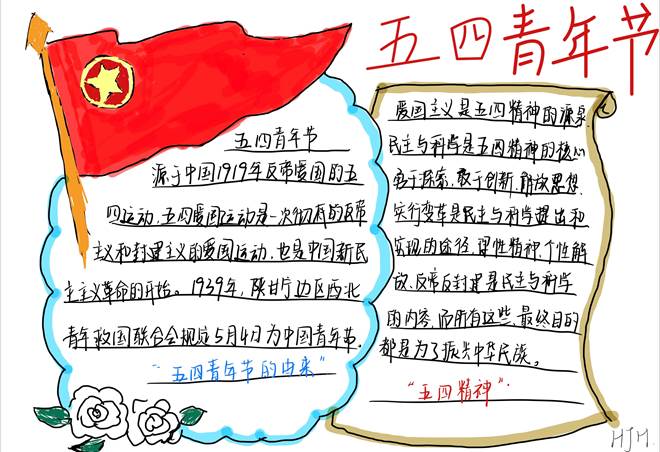 五四青年节
五四青年节
源于中国1919年反帝爱国的五
四运动,五四爱国运动是一次彻底的反帝
主义和封建主义的爱国运动,也是中国新民
主主义革命的开始。1939年,陕甘宁边区西北
青年救国联合会规定5月4日为中国青年节.
“五四青年节的由来”
爱国主义是五四精神的源泉,
民主与科学是五四精神的核心
勇于探索、敢于创新、解放思想、
实行变革是民主与科学提出和
实现的途径,理性精神、个性解
放、反帝反封建是民主与科学
的内容,而所有这些,最终目的
都是为了振兴中华民族。
“五四精神”.
HJM.